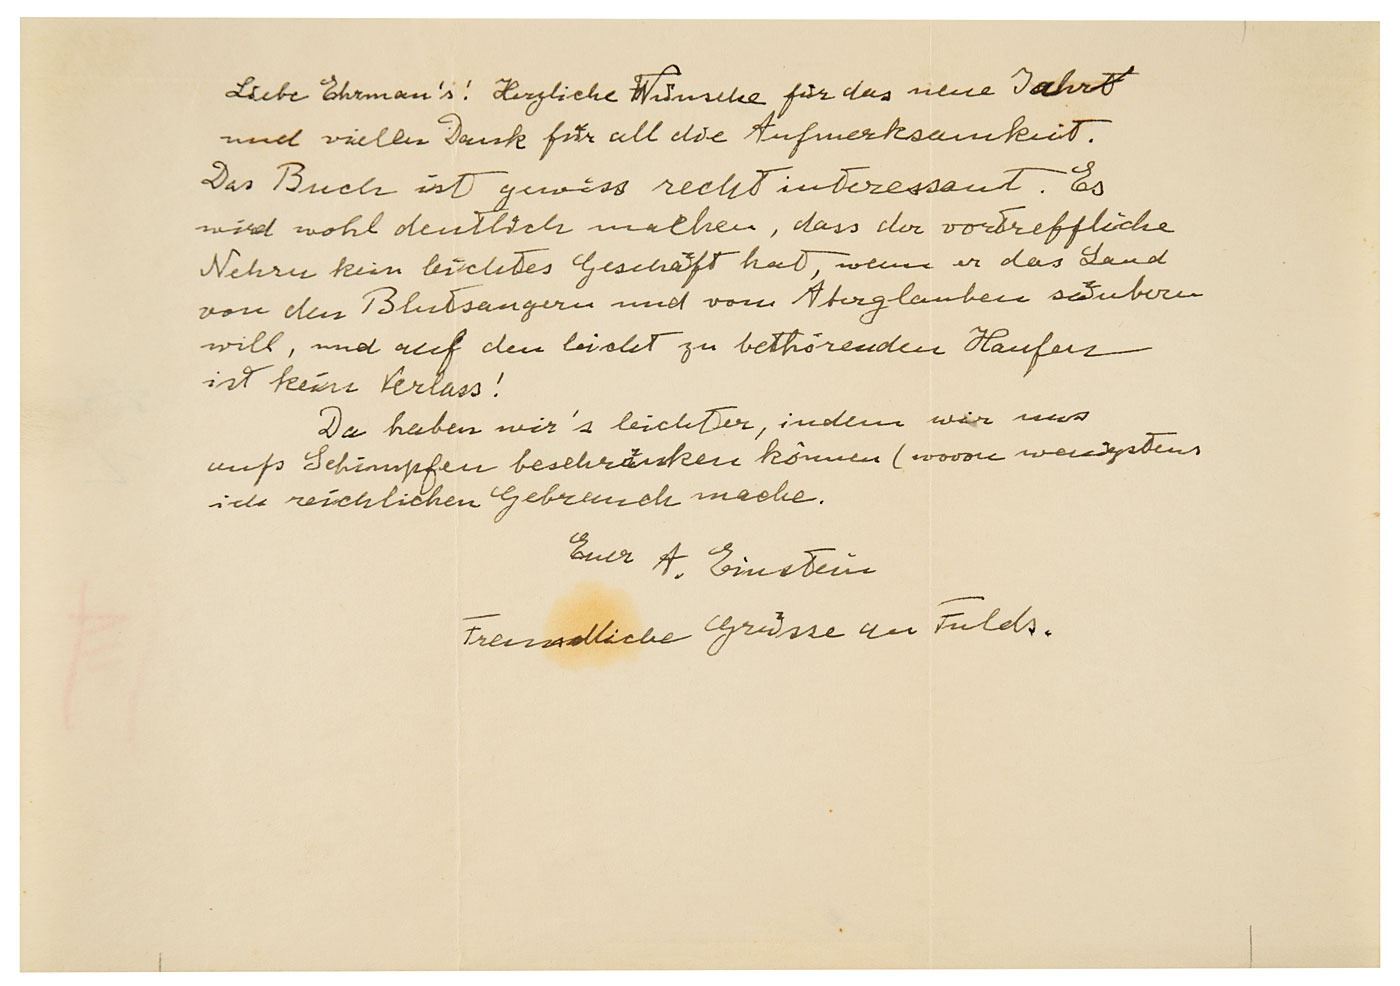 Liebe Ehrman's! Herzliche Wünsche für das neue Jahr
und vielen Dank für all die Aufmerksamkeit.
Das Buch ist gewiss recht interessant. Es
wird wohl deutlich machen, dass der vortreffliche
Nehru kein leichtes Geschäft hat, wenn er das Land
von den Blutsaugern und vom Aberglauben säubern
will, und auf den leicht zu bethörenden Haufen
ist kein Verlass!
Da haben wir's leichter, indem wir uns
aufs Schimpfen beschränken können (wovon wenigstens
ich reichlichen Gebrauch mache.
Euer A. Einstein
Freundliche Grüsse an Fulds.